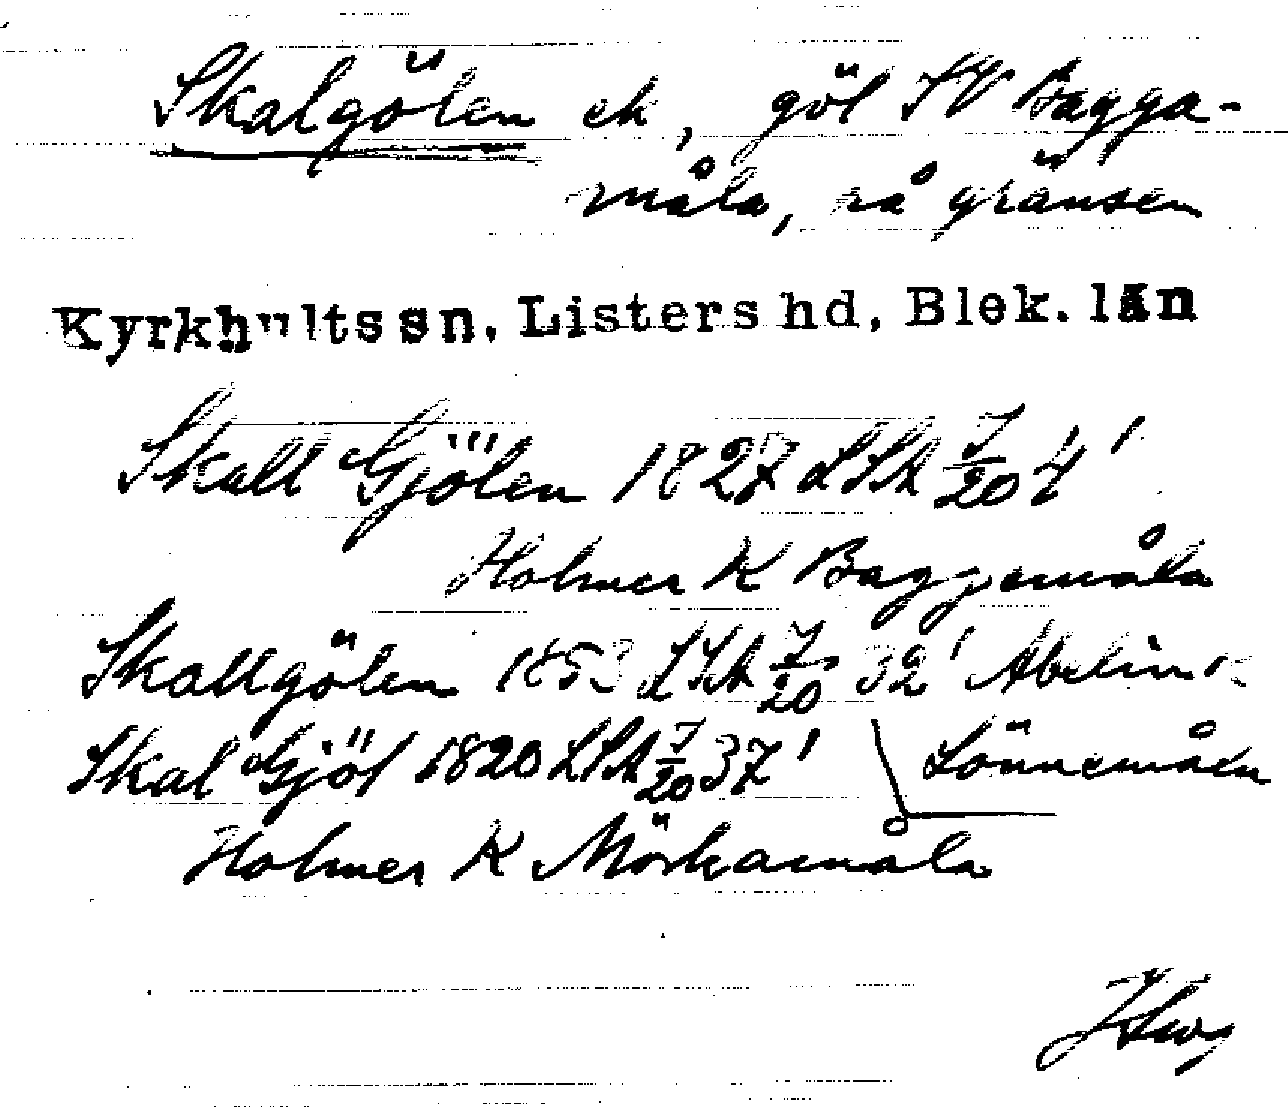 Skalgölen ek, göl SV Bagga-
måla, på gränsen
Kyrkhults sn, Listers hd, Blek. län
Skall Gjölen 1827 LSA 7/20 4'
Holmer K Baggemåla
Skallgölen 1853 LSA 7/20 32' Abelin K
Skal Gjöl 1820 LSA 7/20 37' Lönnemåla
Holmer K Mörkamåla